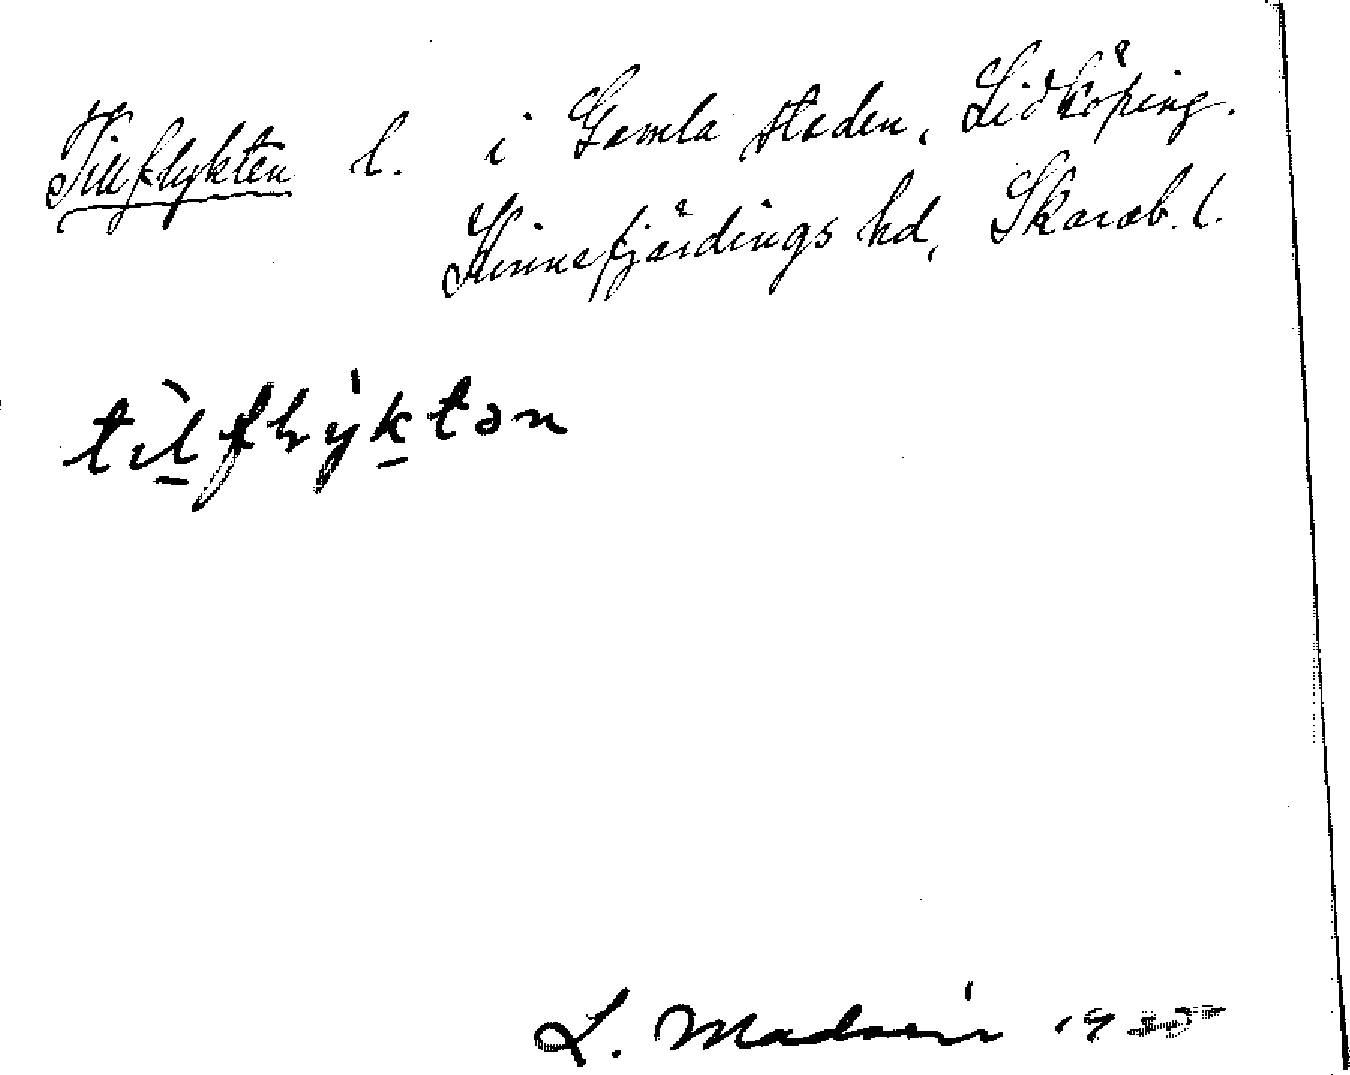 Tillflykten l. i Gamla staden, Lidköping.
Kinnefjärdings hd, Skarab. l.
tìlflýktən
L. Madsén